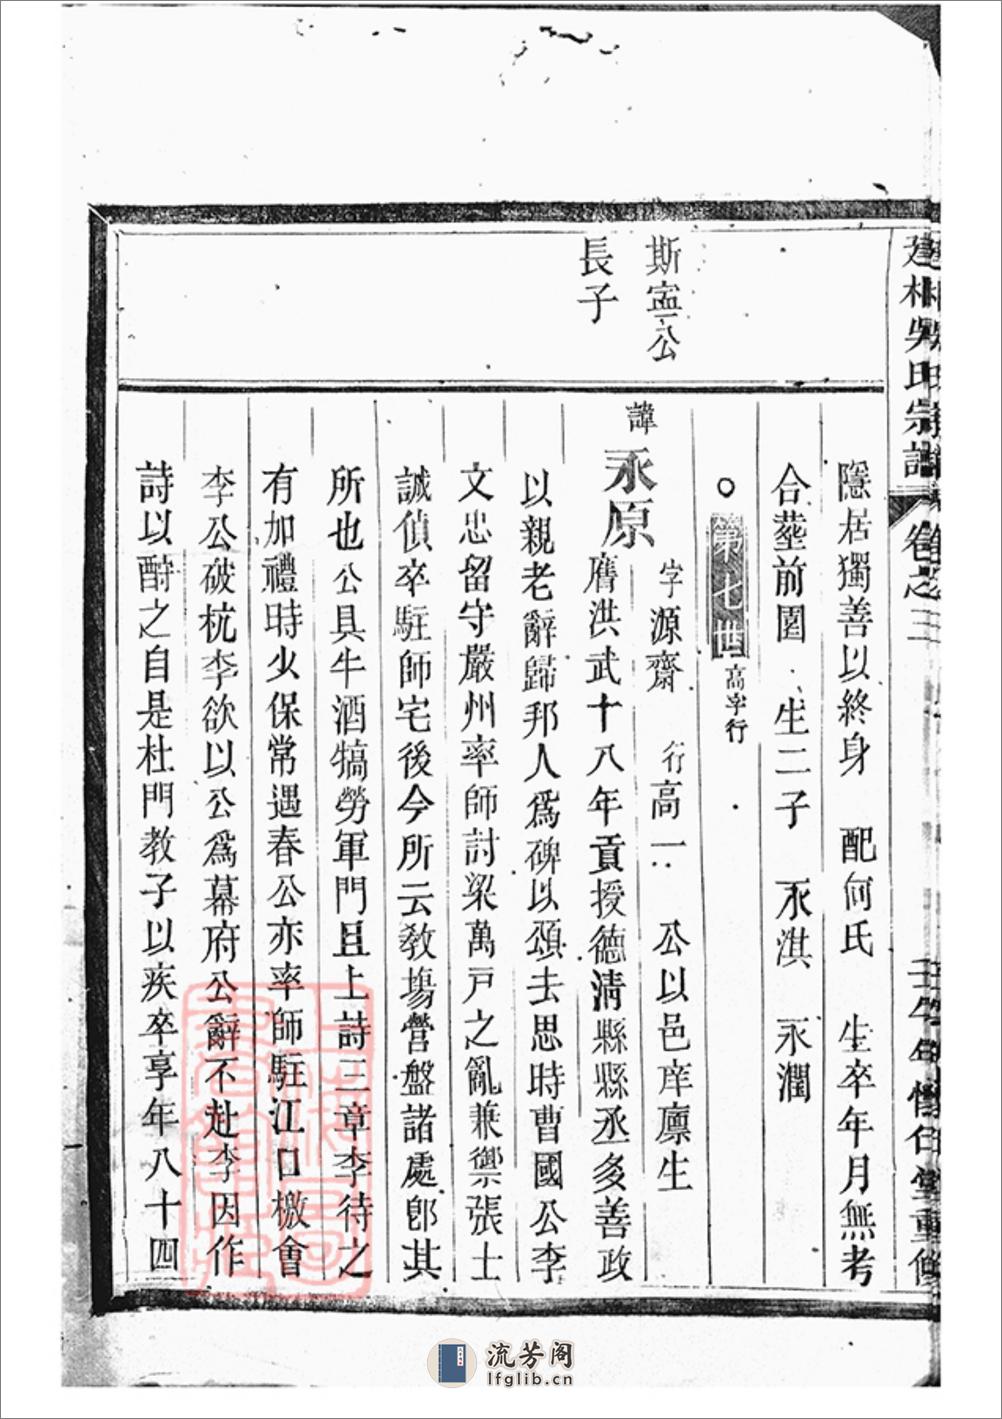 建林吳氏宗譜 卷之三 壬午年惇仁堂重修
隱居獨善以終身 配何氏 生卒年月無考
合塟前園 生二子 永淇 永潤
第七世 高字行
斯寍公
長子
諱永原 字源齋 行高一 公以邑庠廪生
膺洪武十八年貢授德清縣縣丞多善政
以親老辭歸邦人爲碑以頌去思時曹國公李
文忠留守嚴州率師討梁萬戸之亂兼禦張士
誠偵卒駐師宅後今所云教塲營盤諸處卽其
所也公具牛酒犒勞軍門且上詩三章李待之
有加禮時少保常遇春公亦率師駐江口檄會
李公破杭李欲以公爲幕府公辭不赴李因作
詩以酧之自是杜門教子以疾卒享年八十四
流芳阁
lfglib.cn